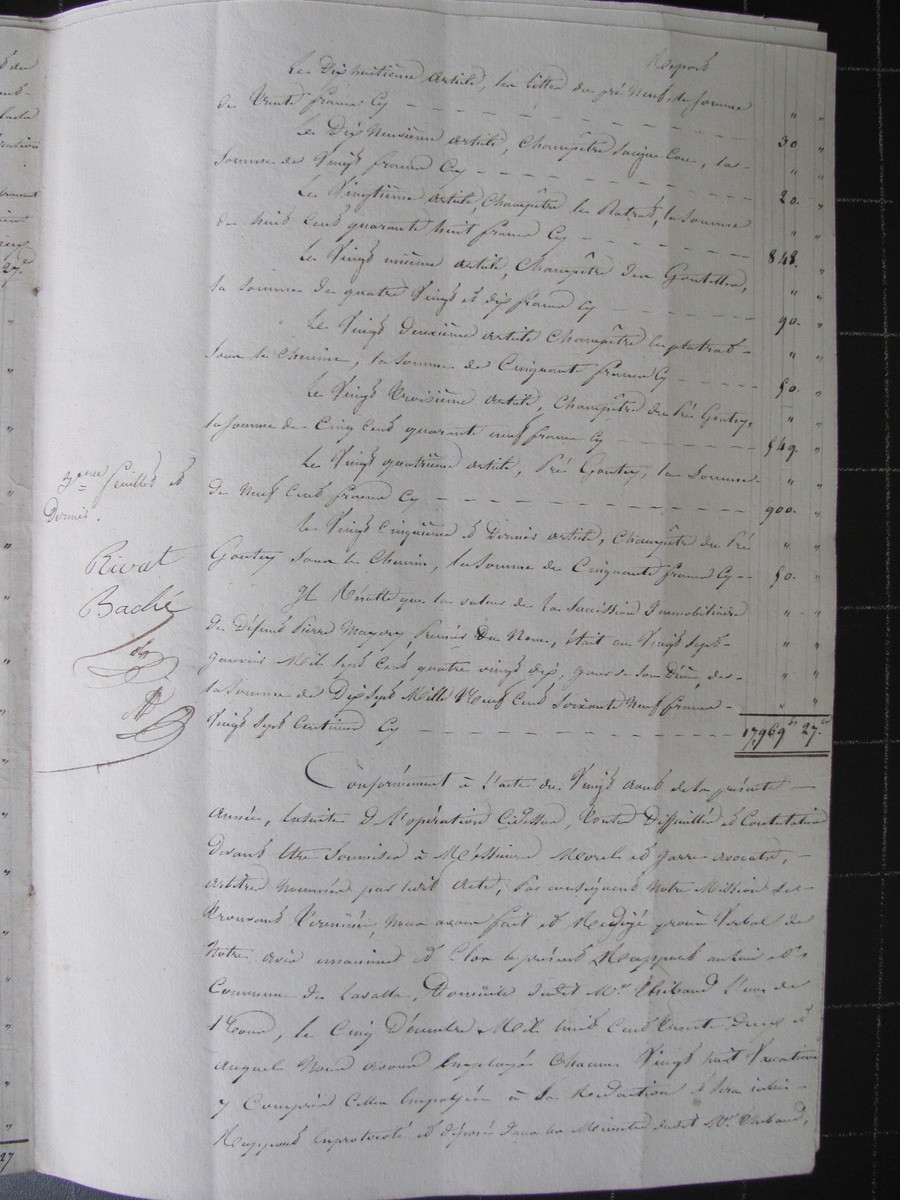 Report
Le Dix huitième article, les litter du pré Neuf, la somme " "
de trente francs Cy - - - 30 "
Le Dix Neuvième article, Champêtre la - " "
Somme de Vingt francs Cy - - - 20. "
Le Vingtième article, Champêtre les Rotras, la somme " "
de huit cent quarante huit francs Cy - - - 848. "
Le Vingt unième article, Champêtre des Gouttettes, " "
la somme de quatre Vingt et dix francs Cy - - - 90. "
Le Vingt Deuxième article Champêtre " "
sous le Chemin, la somme de Cinquante francs Cy - - - 50. "
Le Vingt Troisième article, Champêtre du Pré Goutey, " "
la somme de Cinq cent quarante neuf francs Cy - - - 549. "
Le Vingt quatrième article, Pré Goutey, la Somme " "
de Neuf Cent francs Cy - - - 900. "
le Vingt Cinquième et Dernier article, Champêtre du Pré " "
Goutey sous le Chemin, la Somme de Cinquante francs Cy - - 50. "
Il Résulte que la valeur de la Succession Immobiliaire " "
de Défunt Pierre Premier du Nom, était au Vingt Sept " "
Janvier Mil Sept Cent quatre vingt dix, jour de son Décès, de " "
la Somme de Dix Sept Mille Neuf Cent Soixante Neuf francs " "
Vingt Sept Centimes Cy - - - 17,969 27.
3eme feuillet et
Dernier.
Rivat
Baché
Conformément à l'acte du Vingt août de la présente
Année, ensuite de l'opération Ci-dessus, toute Difficultés et Contestation
devant être Soumises à Messieurs Morel et Jarre avocats, -
arbitres nommés par ledit acte, Par conséquent Notre Mission se
trouvant Terminée, Nous avons fait et Rédigé procès Verbal de
Notre avis unanime et Clos le présent Rapport au lieu et
Commune de Lavalla, Domicile dudit Mr. Thibaud l'un de
Nous, le Cinq Décembre Mil huit Cent trente Deux et
auquel Nous avons Employés Chacun Vingt huit Vacations
y Compris Celles Employées à sa Rédaction et sera
Rapport et déposé dans les Minutes dudit Mr. Thibaud,